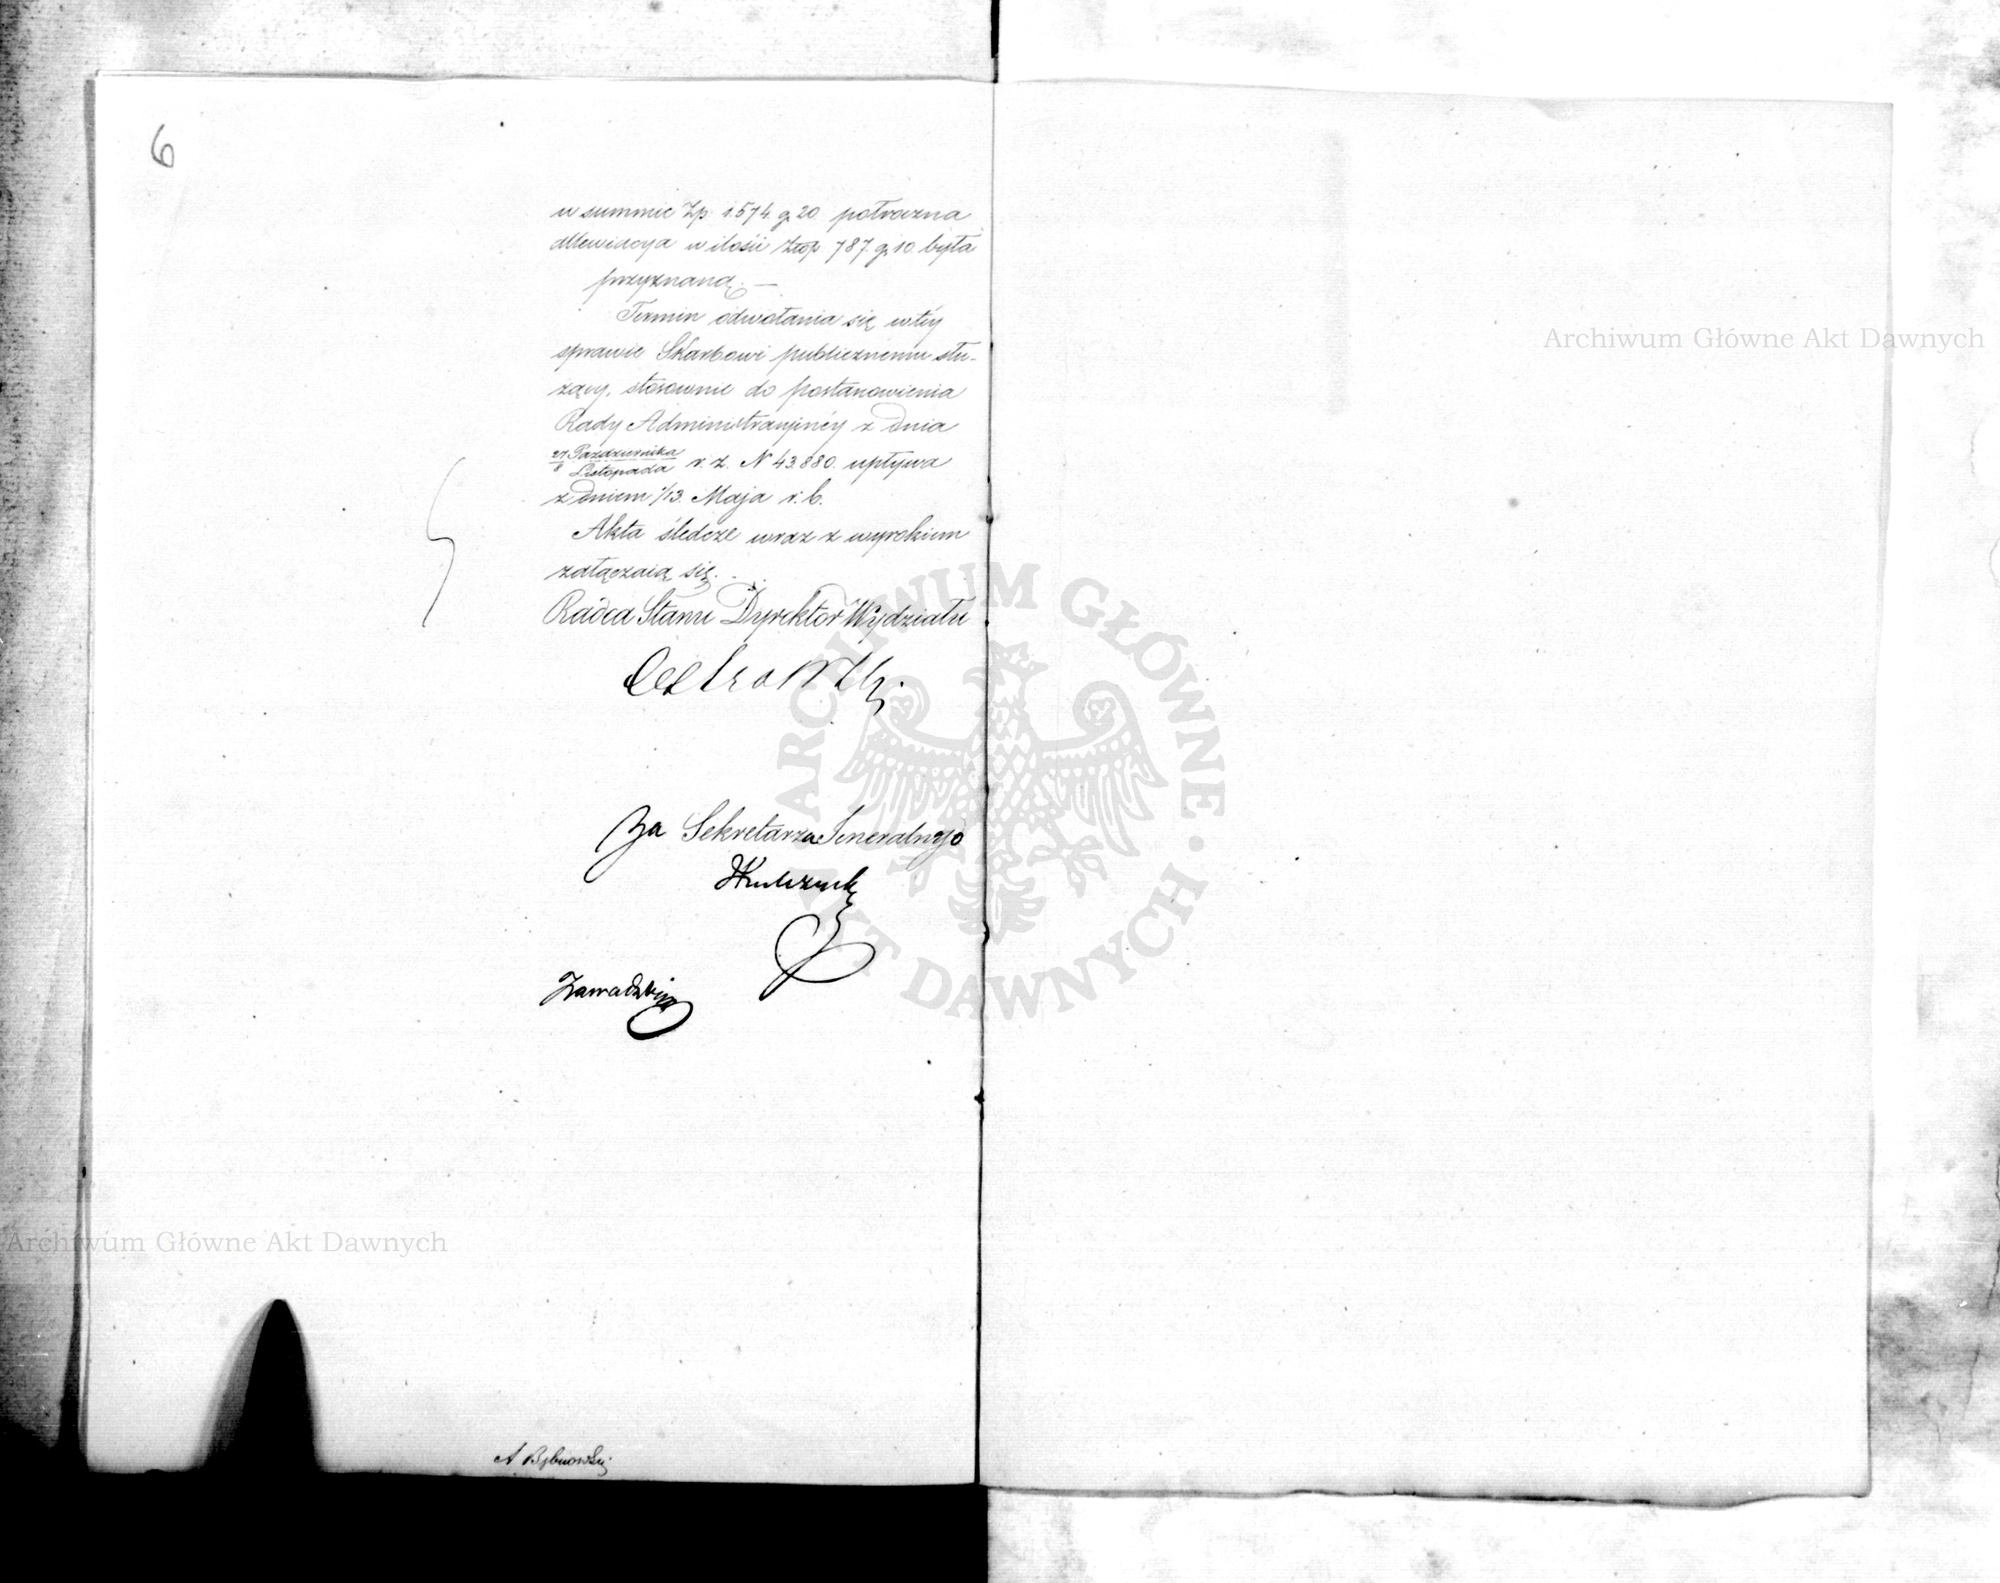 6
w summie Zp. 1.574. g. 20. potroczna
allewiacya w ilości Złop. 787. g. 10. była
przyznaną. —
Termin odwołania się w téy
sprawie Skarbowi publicznemu słu-
żący, stosownie do postanowienia
Rady Administracyinéy z dnia
27 Października
8 Listopada r. z. N 43.880. upływa
z dniem 1/13. Maja r. b.
Akta śledcze wraz z wyrokiem
załączaią się.
Radca Stanu Dyrektor Wydziału
Za Sekretarza Jeneralnego
Zawadzki
A Bybnowski
Archiwum Główne Akt Dawnych
Archiwum Główne Akt Dawnych
ARCHIWUM GŁÓWNE AKT DAWNYCH